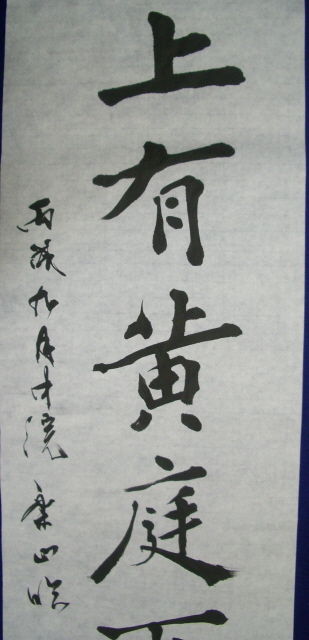 上有黄庭下
丙戌九月中浣 山臨